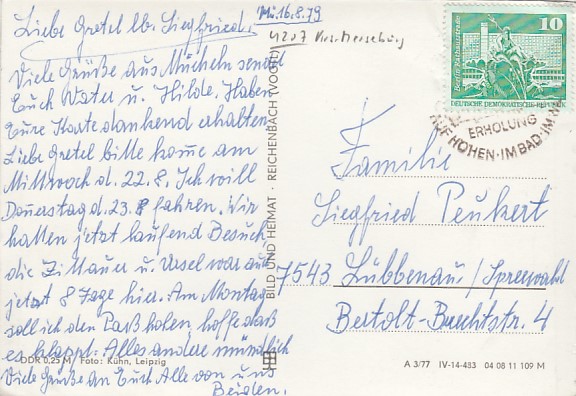 Liebe Gretel lb. Siegfried.
Mi. 16.8.79
4207 Krs. Merseburg
Viele Grüße aus Mücheln senden
Euch Walter u. Hilde. Haben
Eure Karte dankend erhalten
Liebe Gretel bitte komme am
Mittwoch d. 22.8. Ich will
Donerstag d. 23.8 fahren. Wir
hatten jetzt laufend Besuch,
die Zittauer u. Ursel war auch
jetzt 8 Tage hier. Am Montag
soll ich den Paß holen, hoffe daß
es klappt. Alles andere mündlich
Viele Grüße an Euch Alle von uns
Beiden.
BILD UND HEIMAT · REICHENBACH (VOGTL)
DDR 0,25 M Foto: Kühn, Leipzig
10
Berlin, Rathausstraße
DEUTSCHE DEMOKRATISCHE REPUBLIK
ERHOLUNG
AUF HÖHEN · IM BAD · IM
Familie
Siegfried Peukert
7543 Lübbenau / Spreewald
Bertolt-Brechtstr. 4
A 3/77 IV-14-483 04 08 11 109 M